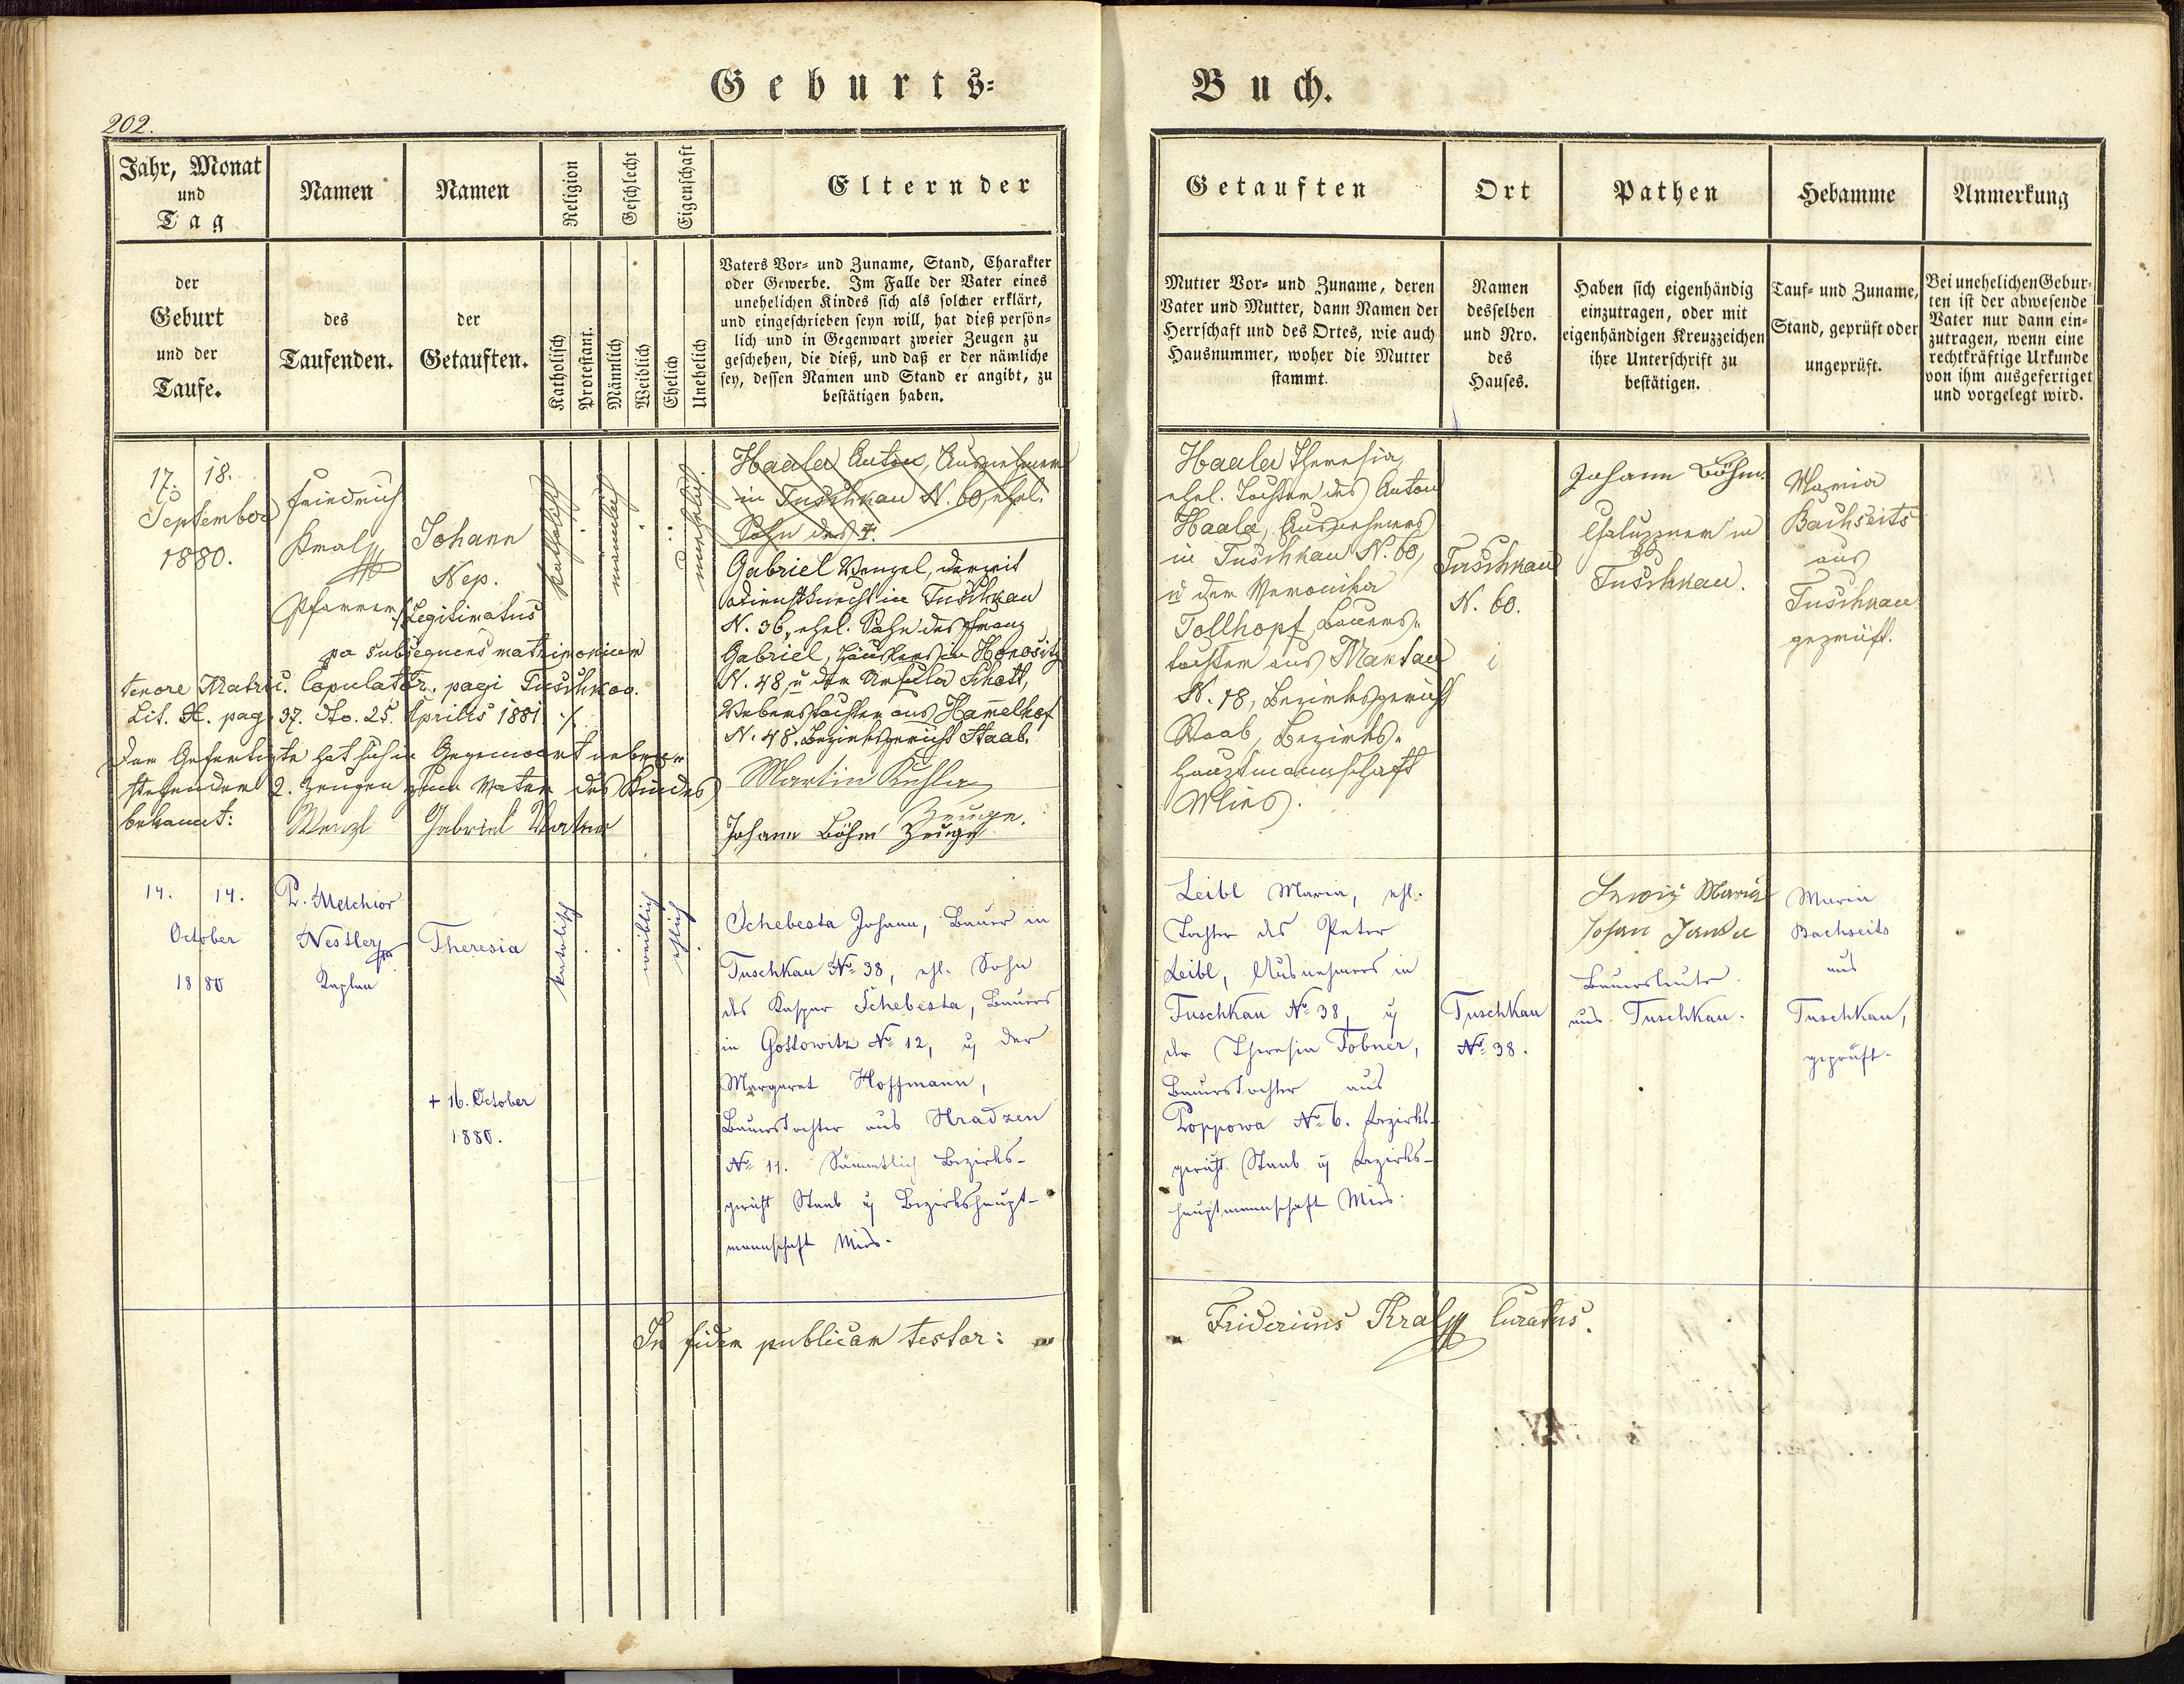 Geburts=
Buch.
202.
Jahr, Monat
und
Tag
der
Geburt
und der
Taufe.
Namen
des
Taufenden.
Namen
der
Getauften.
Religion
Katholisch
Protestant.
Geschlecht
Männlich
Weiblich
Eigenschaft
Ehelich
Unehelich
Eltern der
Vaters Vor= und Zuname, Stand, Charakter
oder Gewerbe. Im Falle der Vater eines
unehelichen Kindes sich als solcher erklärt,
und eingeschrieben seyn will, hat dieß persön=
lich und in Gegenwart zweier Zeugen zu
geschehen, die dieß, und daß er der nämliche
sey, dessen Namen und Stand er angibt, zu
bestätigen haben.
Getauften
Mutter Vor= und Zuname, deren
Vater und Mutter, dann Namen der
Herrschaft und des Ortes, wie auch
Hausnummer, woher die Mutter
stammt.
Ort
Namen
desselben
und Nro.
des
Hauses.
Pathen
Haben sich eigenhändig
einzutragen, oder mit
eigenhändigen Kreuzzeichen
ihre Unterschrift zu
bestätigen.
Hebamme
Tauf= und Zuname,
Stand, geprüft oder
ungeprüft.
Anmerkung
Bei unehelichen Gebur=
ten ist der abwesende
Vater nur dann ein=
zutragen, wenn eine
rechtkräftige Urkunde
von ihm ausgefertiget
und vorgelegt wird.
17. 18.
September
1880.
Friedrich
Kral
Pfarrer
Johann
Nep.
Legitimatus
per subsequens matrimonium
tenore Matric. Copulator. pagi Tuschkau
Lit. H. pag. 37. dto. 25. Aprilis 1881 ./.
Der Gefertigte hat sich in Gegenwart neben
stehender 2. Zeugen zum Vater des Kindes
bekannt: Wenzl Gabriel Vater
katholisch
männlich
unehelich
Haala Anton, Ausnehmer
in Tuschkau N. 60, ehel.
Sohn des †.
Gabriel Wenzel, derzeit
Dienstknecht in Tuschkau
N. 36, ehel. Sohn des Franz
Gabriel, Häuslers in Honositz
N. 48, u der Ursula Schott,
Weberstochter aus Hamelhof
N. 48. Bezirksgericht Staab.
Martin Kuhla
Zeuge.
Johann Böhm Zeuge
Haala Theresia,
ehel. Tochter des Anton
Haala, Ausnehmers
in Tuschkau N. 60,
u der Veronika
Tollhopf, Bauers-
tochter aus Mantau
N. 18, Bezirksgericht
Staab, Bezirks-
hauptmannschaft
Mies.
Tuschkau
N. 60.
Johann Böhm
in
Tuschkau.
Maria
Bachseits
aus
Tuschkau
geprüft.
14. 14.
October
1880
P. Melchior
Nestler
Kaplan
Theresia
+ 16. October
1880.
katolisch
weiblich
ehlich
Schebesta Johann, Bauer in
Tuschkau No 38, ehl. Sohn
des Kaspar Schebesta, Bauers
in Gottowitz No 12, u der
Margaret Hoffmann,
Bauerstochter aus Hradzen
No 11. Sämmtlich Bezirks-
gericht Staab u Bezirkshaupt-
mannschaft Mies.
Leibl Maria, ehl.
Tochter des Peter
Leibl, Ausnehmers in
Tuschkau No 38, u
der Theresia Tobner,
Bauerstochter aus
Poppowa No 6. Bezirks-
gericht Staab u Bezirks-
hauptmannschaft Mies.
Tuschkau
No 38.
Maria
Johan Janda
Bauersleute
aus Tuschkau.
Maria
Bachseits
aus
Tuschkau,
geprüft.
In fidem publicam testor:
Fridericus Kral Curatus.